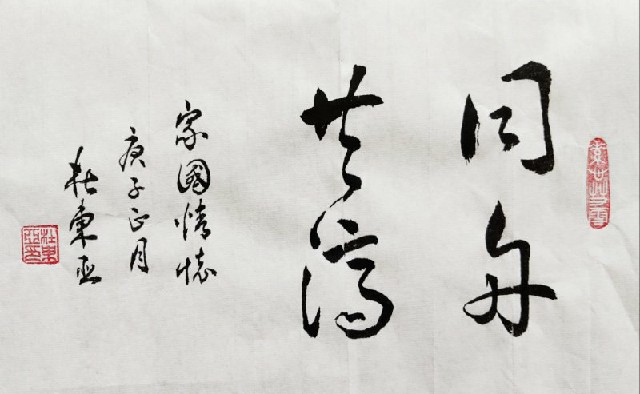 同舟
共濟
家國情懷
庚子正月
杜東亞